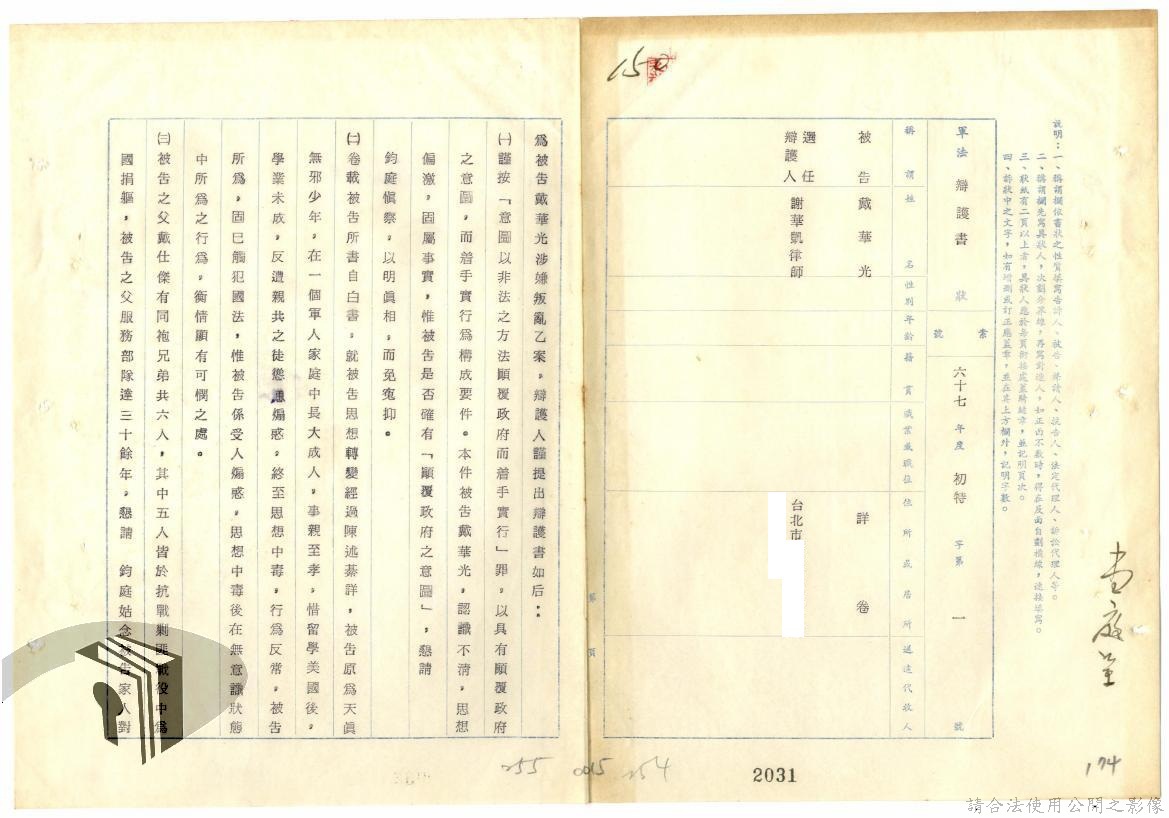 150
當庭呈
174
說明：一、稱謂欄依書狀之性質填寫告訴人、被告、聲請人、抗告人、法定代理人、訴訟代理人等。
二、稱謂欄先寫具狀人，次劃分界線，再寫對造人，如正面不敷時，得在反面自劃橫線，連接填寫。
三、狀紙有二頁以上者，具狀人應於每頁銜接處蓋騎縫章，並記明頁次。
四、訴狀中之文字，如有增刪或訂正應蓋章，並在其上方欄外，記明字數。
軍法 辯護書 狀
案號 六十七 年度 初特 字第 一 號
稱謂 姓名 性別 年齡 籍貫 職業或職位 住所或居所 送達代收人
被告 戴華光 詳卷
選任辯護人 謝華凱律師 台北市
第 頁
2031
為被告戴華光涉嫌叛亂乙案，辯護人謹提出辯護書如后：
㈠謹按「意圖以非法之方法顚覆政府而着手實行」罪，以具有顚覆政府
之意圖，而着手實行為構成要件。本件被告戴華光，認識不淸，思想
偏激，固屬事實，惟被告是否確有「顚覆政府之意圖」，懇請
鈞庭愼察，以明眞相，而免寃抑。
㈡卷載被告所書自白書，就被告思想轉變經過陳述綦詳，被告原為天眞
無邪少年，在一個軍人家庭中長大成人，事親至孝，惜留學美國後，
學業未成，反遭親共之徒慫恿煽惑，終至思想中毒，行為反常，被告
所為，固已觸犯國法，惟被告係受人煽惑，思想中毒後在無意識狀態
中所為之行為，衡情顯有可憫之處。
㈢被告之父戴仕傑有同袍兄弟共六人，其中五人皆於抗戰剿匪戰役中為
國捐軀，被告之父服務部隊達三十餘年，懇請 鈞庭姑念被告家人對
255 0015 254
請合法使用公開之影像